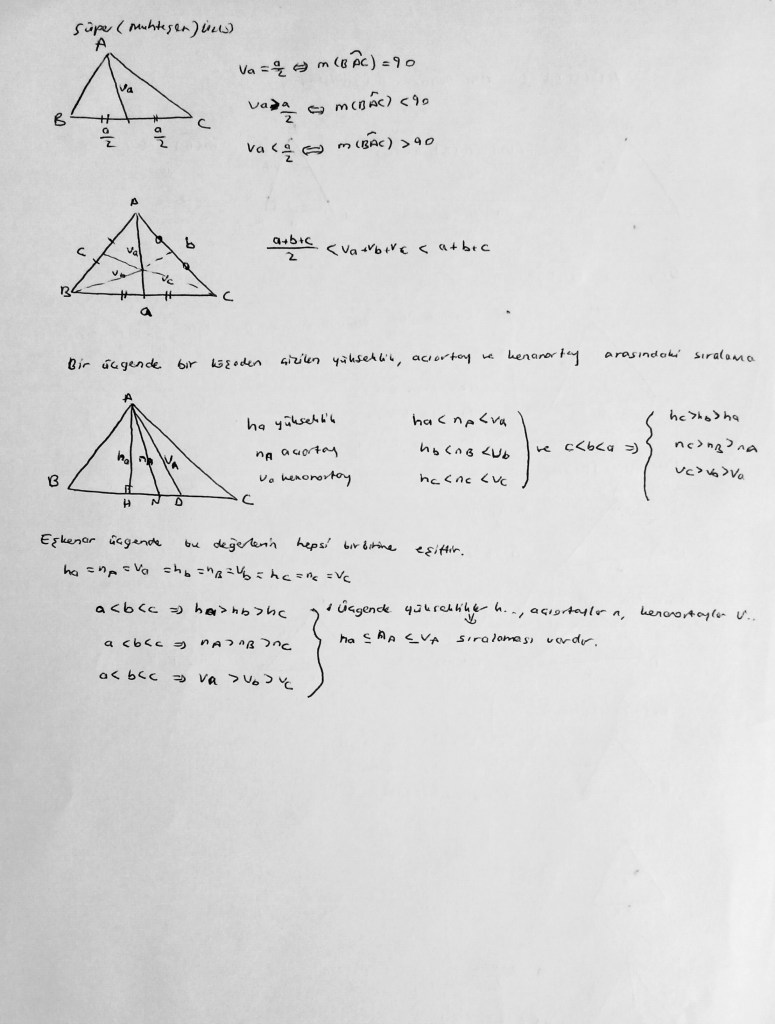 Süper (Muhteşem) Üçlü
A
Va
B
C
a/2
a/2
Va = a/2 ⇔ m(BAC) = 90
Va > a/2 ⇔ m(BAC) < 90
Va < a/2 ⇔ m(BAC) > 90
A
c
Va
b
Vb
Vc
B
C
a
(a+b+c)/2 < Va+Vb+Vc < a+b+c
Bir üçgende bir köşeden çizilen yükseklik, açıortay ve kenarortay arasındaki sıralama
A
ha
nA
VA
B
H
N
D
C
ha yükseklik
nA açıortay
Va kenarortay
ha < nA < Va
hb < nB < Vb
hc < nc < Vc
ve c<b<a ⇒
hc>hb>ha
nc>nB>nA
Vc>Vb>Va
Eşkenar üçgende bu değerlerin hepsi birbirine eşittir.
ha = nA = Va = hb = nB = Vb = hc = nc = Vc
a<b<c ⇒ ha>hb>hc
a<b<c ⇒ nA>nB>nC
a<b<c ⇒ VA>Vb>Vc
Üçgende yükseklikler h.., açıortaylar n, kenarortaylar V..
ha ≤ nA ≤ VA sıralaması vardır.